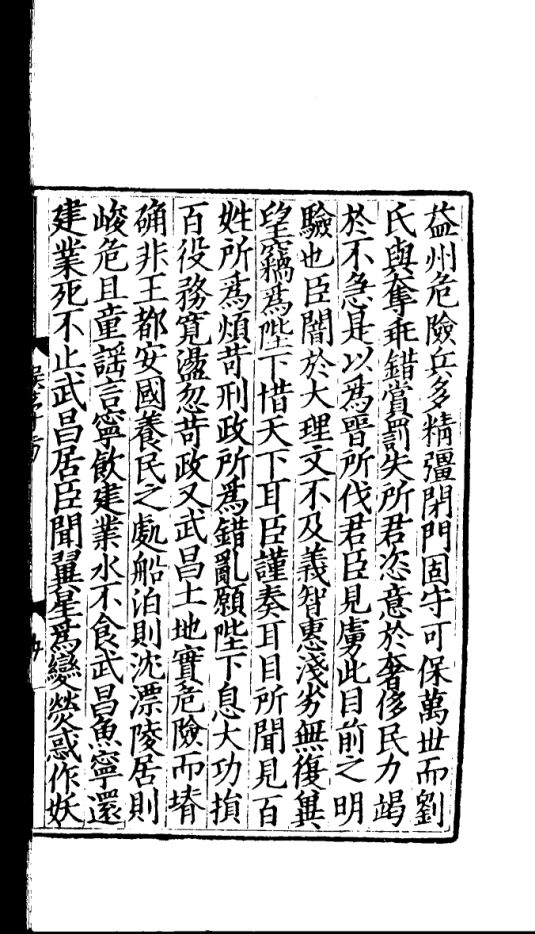 益州危險兵多精彊閉門固守可保萬世而劉
氏與奪乖錯賞罰失所君恣意於奢侈民力竭
於不急是以爲晉所伐君臣見虜此目前之明
驗也臣闇於大理文不及義智惠淺劣無復兾
望竊爲陛下惜天下耳臣謹奏耳目所聞見百
姓所爲煩苛刑政所爲錯亂願陛下息大功損
百役務寬盪忽苛政又武昌土地實危險而塉
确非王都安國養民之處船泊則沈漂陵居則
峻危且童謡言寧飲建業水不食武昌魚寧還
建業死不止武昌居臣聞翼星爲變熒惑作妖